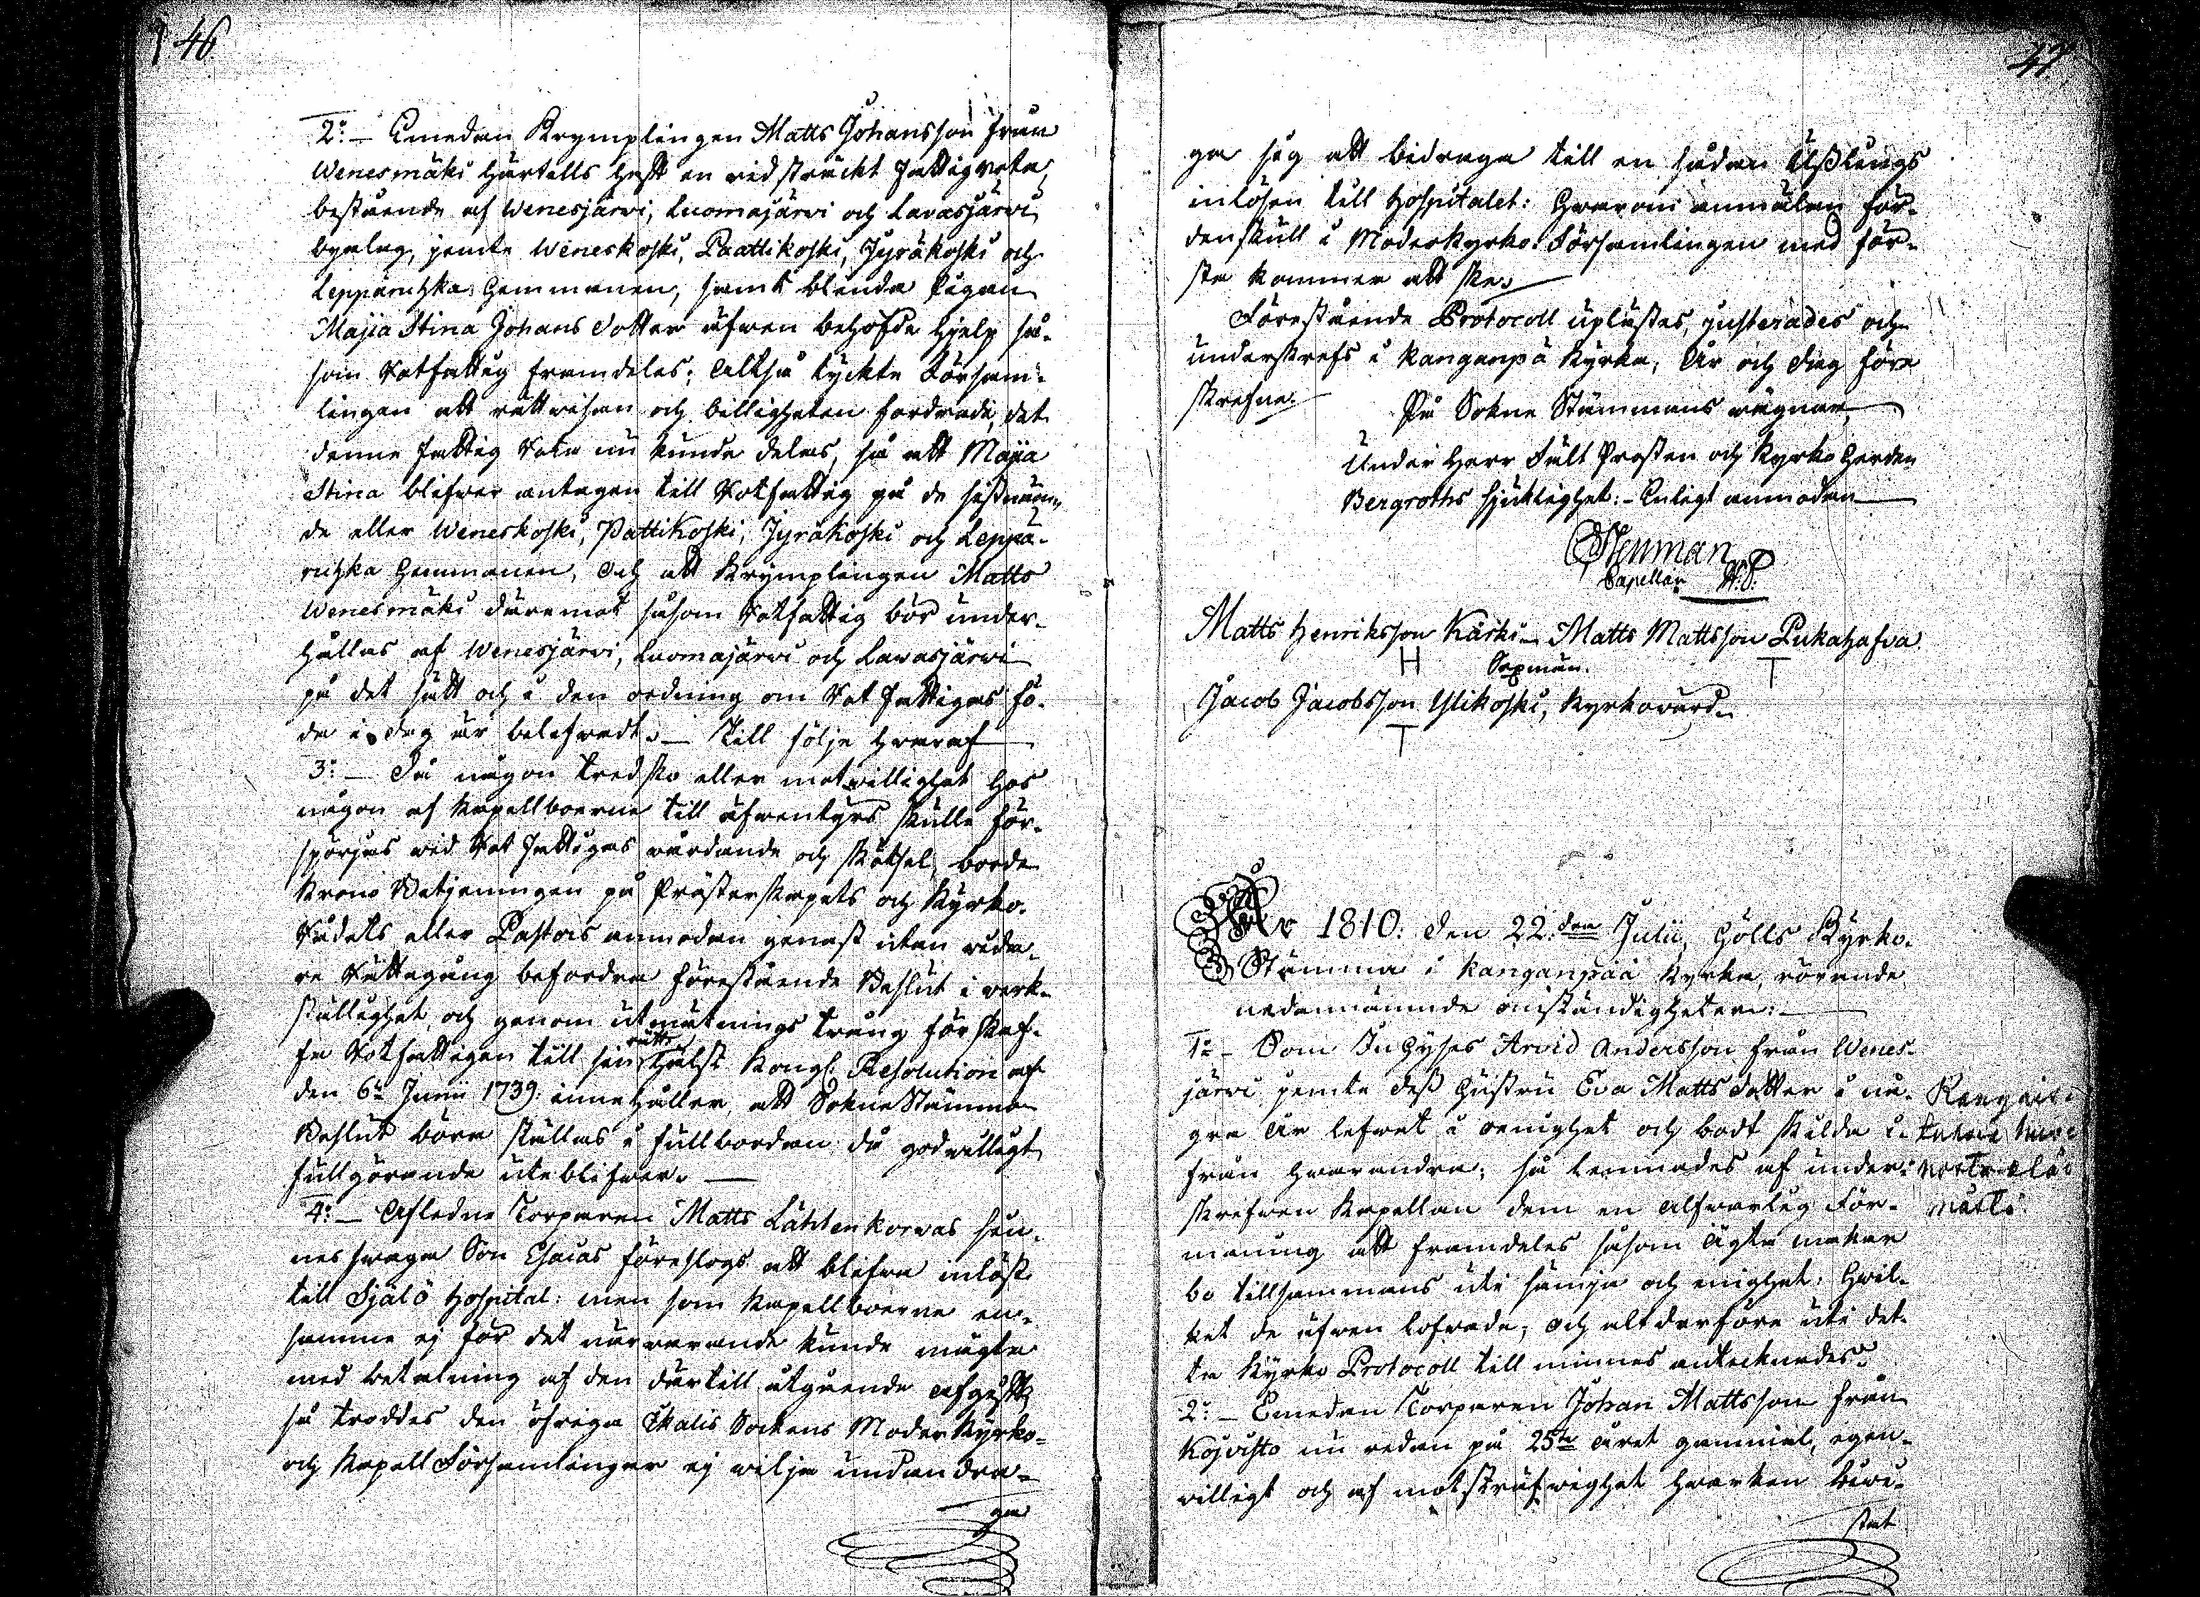 46.
2:o – Emedan Krymplingen Matts Johansson från
Wenesmäki härtills haft en vidsträckt fattigrota,
bestående af Wenesjärvi, Luomajärvi och Lavasjärvi
byalag, jemte Weneskoski, Paattikoski, Jyräkoski och
Lepparuhka Hemmanen, samt blinda Pigan
Majia Stina Johans Dotter äfwen behöfde hjelp så-
som Rotfattig framdeles; Altså tyckte Försam-
lingen att rättwisan och billigheten fordrade, det
denne fattig Rota nu kunde delas, så att Majia
Stina blifwer antagen till Rotfattig på de sistnämn-
de eller Weneskoski, Pattikoski, Jyräkoski och Leppä-
ruhka Hemmanen, och att Krymplingen Matts
Wenesmäki däremot såsom Rotfattig bör under-
hållas af Wenesjärvi, Luomajärvi och Lavasjärvi
på det sätt och i den ordning om Rot fattigas fö-
da i dag är belefwadt. – Till följe hwaraf
3:o – Då någon tredsko eller motwillighet hos
någon af Kapellboerne till äfwentyrs skulle för-
spörjas wid Rot fattigas wårdande och skötsel, borde
Krono Betjeningen på Prästerskapets och Kyrko-
Rådets eller Pastors anmodan genast utan wida-
re Rättegång befordra förestående Beslut i werk-
ställighet, och genom utmätnings twång förskaf-
fa Rotfattigen till sin rätt; Hälst Kongl. Resolution af
den 6:te Junii 1739: innehåller, att SokneStämmo
Beslut böra ställas i fullbordan då godwilligt
fullgörande uteblifwer. –
4:o – Afledne Torparen Matts Lähtenkorvas sin-
nes swaga Son Esaias föreslogs att blifwa inlöst
till Själö Hospital: men som Kapellboerne en-
samme ej för det närwarande kunde mägta
med betalning af den därtill utgående afgift,
så troddes den öfriga Ikalis Sockens Moder Kyrko-
och Kapell Församlingar ej wilja undan dra-
ga
47.
ga sig att bidraga till en sådan Usslings
inlösen till Hospitalet: Hwarom anmälan för-
denskull i Moderkyrko Församlingen med för-
sta kommer att ske.
Förestående Protocoll uplästes, justerades och
underskrefs i Kanganpä Kyrka, År och Dag före
skrefne.
På Sokne Stämmans wägnar,
Under Herr Fält Prosten och Kyrko Herden
Bergroths Sjuklighet: – Enligt anmodan
Neuman
Capellan
Matts Henriksson Kärki – Matts Mattsson Pukahafva.
H Sexmän. T
Jacob Jacobsson Ylikoski, Kyrkovärd.
T
År 1810: den 22:dra Julii, Hölls Kyrko-
Stämma i Kanganpää Kyrka, rörande
nedannämnde omständigheter:
1:o – Som Inhyses Arvid Andersson från Wenes-
järvi jemte dess Hustru Eva Matts Dotter i nå-
gra År lefwat i oenighet och bodt skilda i-
från hwarandra; så lemnades af under-
skrefwen Kapellan dem en alfwarlig För-
maning att framdeles såsom Ägta makar
bo tillsammans uti sämja och enighet; Hwil-
ket de äfwen lofwade; och altderföre uti det-
ta Kyrko Protocoll till minnes antecknades.
2:o – Emedan Torparen Johan Mattsson från
Kojvisto nu redan på 25:te året gammal, egen-
willigt och af motsträfwighet hwarken bewi-
stat